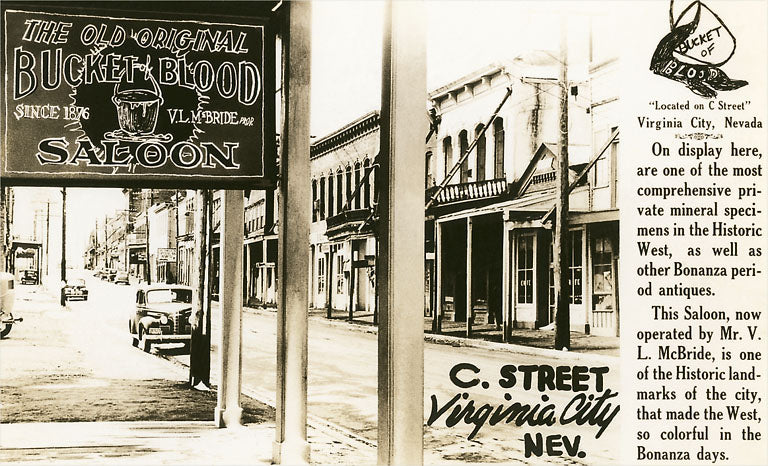 THE OLD ORIGINAL
BUCKET OF BLOOD
SINCE 1876 V.L. McBRIDE PROP.
SALOON
C. STREET
Virginia City
NEV.
BUCKET
OF
BLOOD
"Located on C Street"
Virginia City, Nevada
On display here,
are one of the most
comprehensive pri-
vate mineral speci-
mens in the Historic
West, as well as
other Bonanza peri-
od antiques.
This Saloon, now
operated by Mr. V.
L. McBride, is one
of the Historic land-
marks of the city,
that made the West,
so colorful in the
Bonanza days.